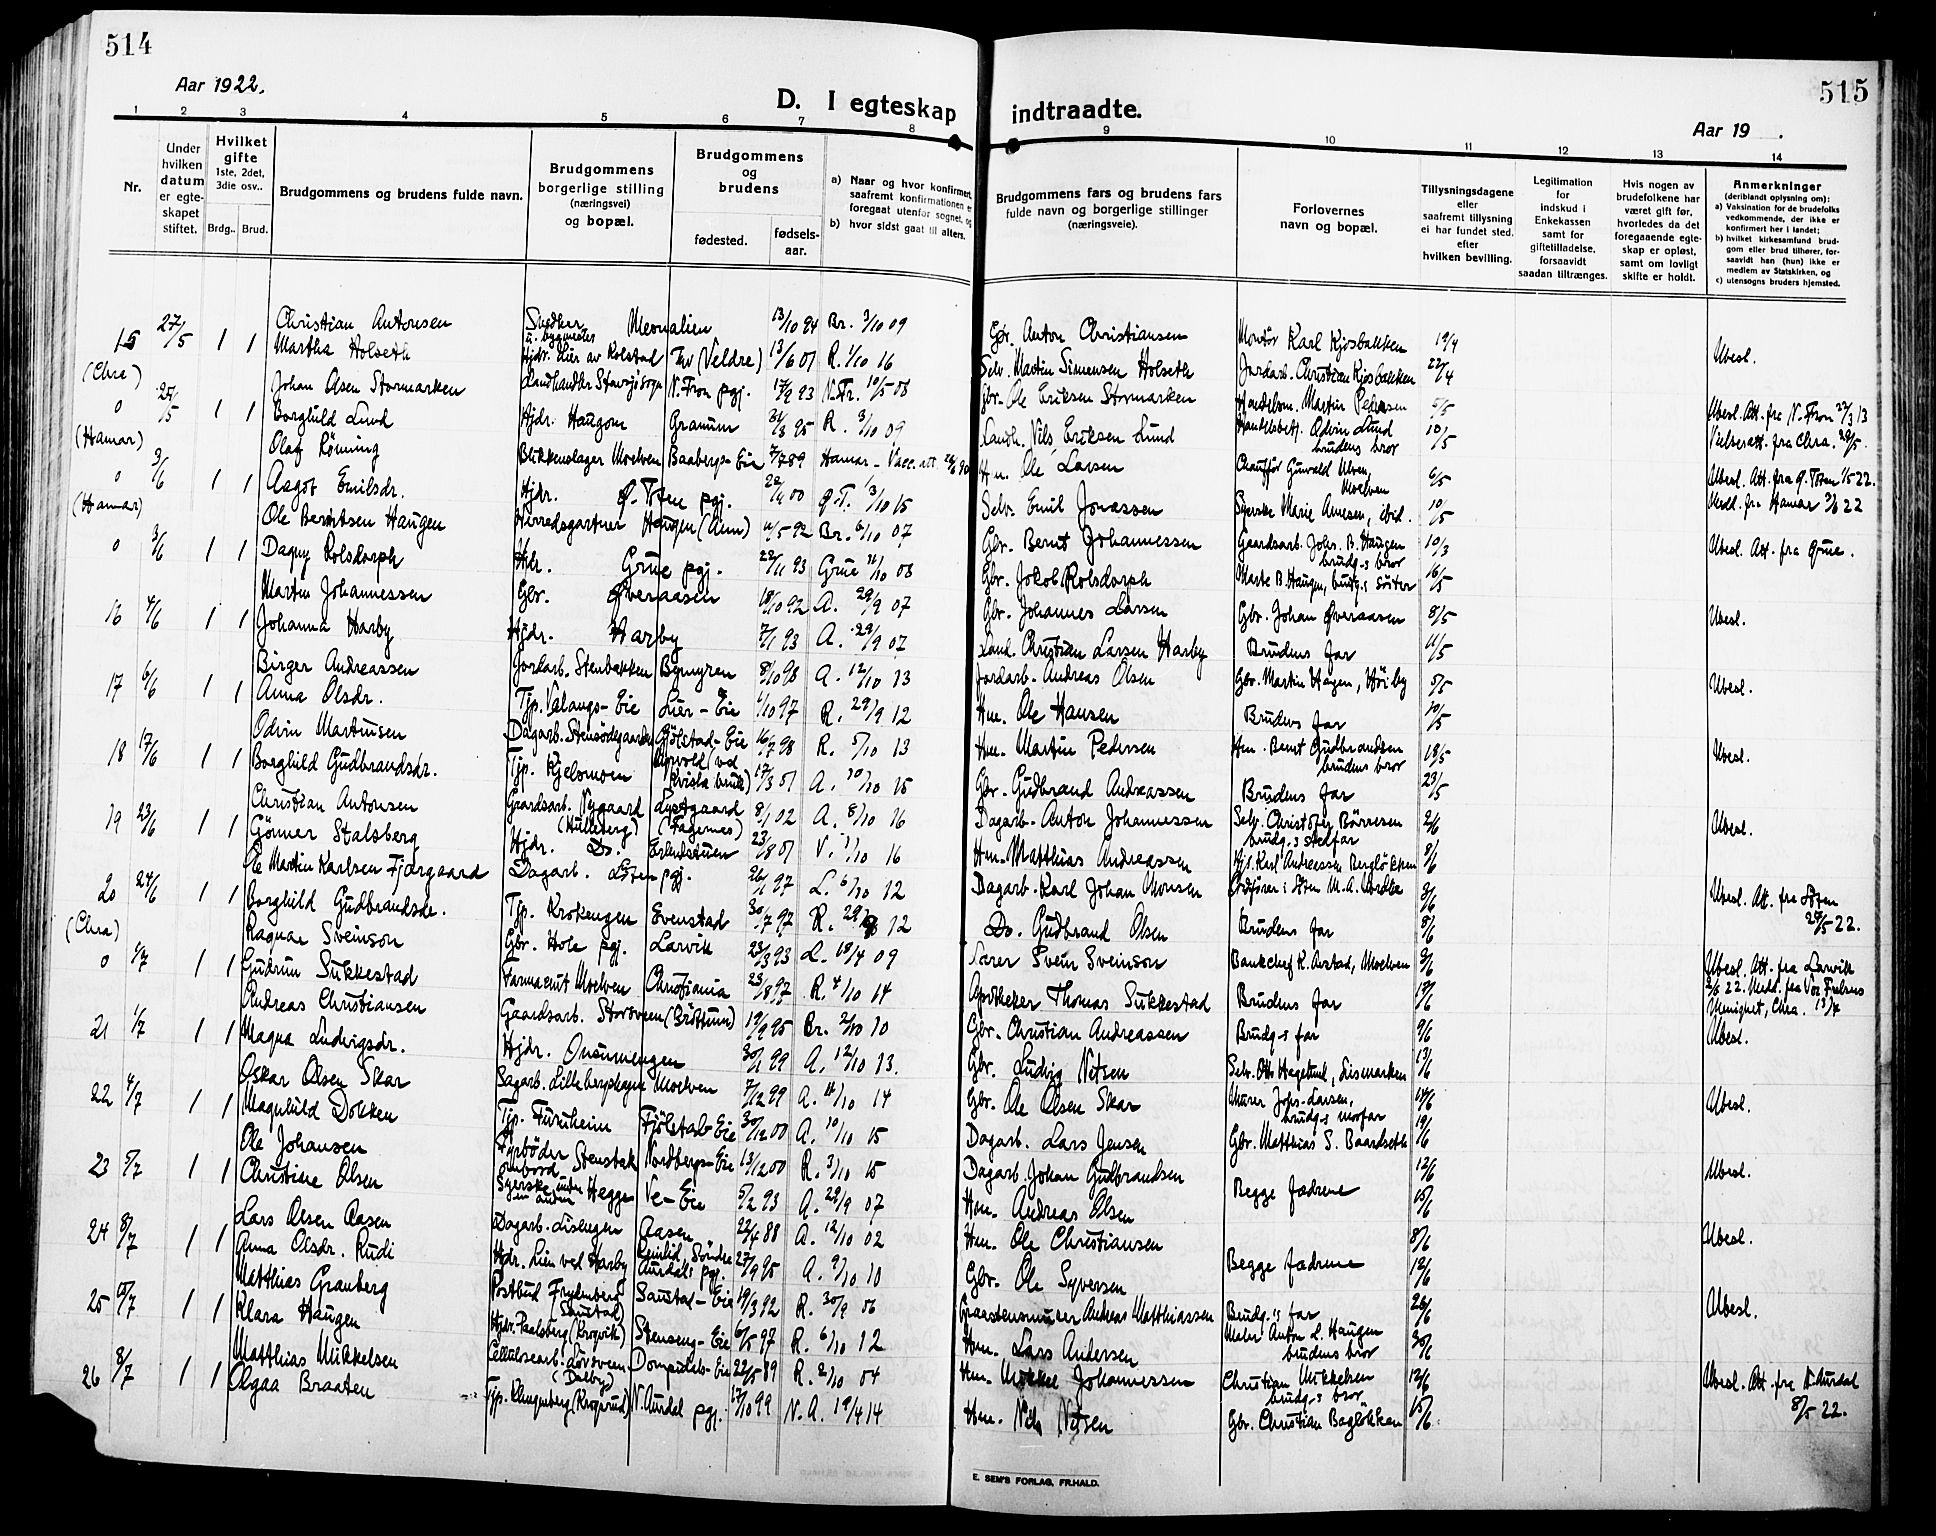 514
Aar 1922.
D. I egteskap
1 2 3 4 5 6 7 8
Nr.
Under hvilken datum er egte-skapet stiftet.
Hvilket gifte 1ste, 2det, 3die osv..
Brdg.. Brud.
Brudgommens og brudens fulde navn.
Brudgommens borgerlige stilling (næringsvei) og bopæl.
Brudgommens og brudens
fødested.
fødsels-aar.
a) Naar og hvor konfirmert, saafremt konfirmationen e foregaat utenfor sognet, og
b) hvor sidst gaat til alters.
15 27/5 1 1 Christian Antonsen
Martha Holseth Hjdr. Lier av Kolstad Thv (Veldre) 13/6 01 R. 1/10 16
(Chra) Johan Olsen Stormarken Landhandler Stavsjö sogn N. Fron pgj. N.Fr. 10/5 08
0 1 1 Borghild Lund Hjdr. Haugom Granum R. 3/10 09
(Hamar) Olaf Rönning Moelven Baabergs-Eie Hamar - Vacc. att.
0 3/6 1 1 Aagot Emilsdr. Hjdr. Ø. Toten pgj. Ø.T. 1/10 15
(Hamar) Ole Berntsen Haugen Herredsgartner Haugen (Aem) Br. 6/10 07
0 3/6 1 1 Dagny Rolsdorph Hjdr. Grue pgj. 22/11 93 Grue
Martin Johannessen Gbr. Øveraasen 18/10 92 A. 29/9 07
16 4/6 1 1 Johanna Harby Hjdr. Harby 7/1 93 A. 29/9 07
Birger Andreassen Jordarb. Stenbakken Bymyren 8/10 98 A. 12/10 13
17 6/6 1 1 Anna Olsdr. Tjp. Valangs-Eie Lier-Eie R. 29/9 12
Odvin Martinsen Dagarb. Stensödegaarden Gjölstad-Eie 16/7 98 R. 5/10 13
18 17/6 1 1 Borghild Gudbrandsdr. Tjp. Kjelsmoen 17/3 01 A. 10/10 15
Christian Antonsen Gaardsarb. Nygaard (Hulleberg) Lystgaard (Fagernes) 8/1 02 A. 8/10 16
19 23/6 1 1 Gönner Stalsberg Hjdr. Do. 23/8 01 V. 1/10 16
Ole Martin Karlsen Fjærgaard Dagarb. Löten pgj. L. 6/10 12
20 24/6 1 1 Borghild Gudbrandsdr. Tjp. Krokengen Evenstad 30/7 97 R. 29/9 12
(Chra) Ragnar Sveinson Gbr. Hole pgj. Larvik 23/3 93 L. 18/4 09
0 4/7 1 1 Gudrun Sukkestad Farmaceut Moelven Christiania 23/8 97 R. 4/10 14
Andreas Christiansen Gaardsarb. Storsveen (Bröttum) 19/9 95 Br. 2/10 10
21 1/7 1 1 Magna Ludvigsdr. Hjdr. Onsumengen 30/1 99 A. 12/10 13.
Oskar Olsen Skar Sagarb. Lillebergshagen Moelven 7/12 99 A. 11/10 14
22 4/7 1 1 Magnhild Dokken Tjp. Furuheim Fjölstad-Eie 30/12 00 A. 10/10 15
Ole Johansen Fyrböder ombord Stenstak Nordbergs-Eie 13/12 00 R. 3/10 15
23 5/7 1 1 Christine Olsen Syerske Hegge Ve-Eie 5/2 93 A. 29/9 07
Lars Olsen Aasen Dagarb. Lisengen Aasen 22/4 88 A. 12/10 02
24 8/7 1 1 Anna Olsdr. Rudi Hjdr. Lien ved Harby Söndre Aurdals pgj. 27/9 95 A. 9/10 10
Matthias Granberg Postbud Frydenberg (Saustad) Saustad-Eie 19/3 92 R. 30/9 06
25 8/7 1 1 Klara Haugen Hjdr. Paalsberg (Krogvik) Stenseng-Eie 6/5 97 R. 6/10 12
Matthias Mikkelsen Cellulosearb. Lövsveen (Dalby) Domputen-Eie 22/5 89 R. 2/10 04
26 8/7 1 1 Olgaa Braaten Tjp. Klingenberg (Krogsrud) N. Aurdal pgj. 17/10 99 N. A. 19/4 14
515
indtraadte.
Aar 19 .
9 10 11 12 13 14
Brudgommens fars og brudens fars fulde navn og borgerlige stillinger (næringsveie).
Forlovernes navn og bopæl.
Tillysningsdagene eller saafremt tillysning ei har fundet sted, efter hvilken bevilling.
Legitimation for indskud i Enkekassen samt for giftetilladelse, forsaavidt saadan tiltrænges.
Hvis nogen av brudefolkene har været gift før, hvorledes da det foregaaende egte-skap er opløst, samt om lovligt skifte er holdt.
Anmerkninger (deriblandt oplysning om):
a) Vaksination for de brudefolks vedkommende, der ikke er konfirmert her i landet;
b) hvilket kirkesamfund brud-gom eller brud tilhører, for-saavidt han (hun) ikke er medlem av Statskirken, og
c) utensogns bruders hjemsted.
Gbr. Anton Christiansen Montör Karl Kjosbakken 19/4
Selv. Martin Simensen Holseth Jordarb. Christian Kjosbakken 22/4 Ubesl.
Gbr. Ole Eriksen Stormarken Handelsm. Martin Pedersen 5/5
Landh. Nils Eriksen Lund Handelsbetj. Odvin Lund brudens bror 10/5 Ubesl. Att. fra N. Fron 22/3 13
Vielsesatt. fra Chra. 29/5.
Hm. Ole Larsen Chauffør Gunvald Ulven, Moelven 6/5 Ubesl. Att. fra Ø. Toten 1/5 22.
Selv. Emil Jonassen Syerske Marie Arnesen, ibid. 10/5 Medd. fra Hamar 3/6 22
Gbr. Bernt Johannessen Gaardsarb. Johs. B. Haugen brudg-s bror 10/3
Gbr. Jakob Rolsdorph Marte B. Haugen, brudg.s söster 16/5 Ubesl. Att. fra Grue.
Gbr. Johannes Larsen Gbr. Johan Øveraasen 8/5
Land. Christian Larsen Harby Brudens far 11/5 Ubesl.
Jordarb. Andreas Olsen Gbr. Martin Hagen, Höiby 5/5
Hm. Ole Hansen Brudens far 10/5 Ubesl.
Hm. Martin Pedersen Hm. Bernt Gudbrandsen brudens bror 18/5
Gbr. Gudbrand Andreassen Brudens far 23/5 Ubesl.
Dagarb. Anton Johannessen Selv. Christofer Börresen brudg-s stedfar 2/6
Hm. Matthias Andreassen Karl Andreassen Berglökken 8/6 Ubesl.
Dagarb. Karl Johan Monsen i Löten M. A. 8/6
Do. Gudbrand Olsen Brudens far 8/6 Ubesl. Att. fra Löten 29/5 22.
Lærer Svein Sveinson Bankchef K. Arstad, Moelven 9/6
Apotheker Thomas Sukkestad Brudens far Ubesl. Att. fra Larvik 2/6 22. Medd. fra Vor Frelsers Menighet, Chra. 13/7
Gbr. Christian Andreassen Brudg-s far 9/6
Gbr. Ludvig Nilsen Selv. Otto Hagetuel, Lismarken 13/6 Ubesl.
Gbr. Ole Olsen Skar Murer Johs. Larsen, brudg-s morfar 14/6
Dagarb. Lars Jensen Gbr. Matthias S. Baardseth 19/6 Ubesl.
Dagarb. Johan Gudbrandsen Begge fædrene 12/6
Hm. Andreas Olsen 15/6 Ubesl.
Hm. Ole Christiansen Begge fædrene 8/6
Gbr. Ole Syversen 12/6 Ubesl.
Graastensmurer Andreas Matthiassen Brudg.s far 26/6
Hm. Lars Andersen Maler Anton L. Haugen brudens bror 30/6 Ubesl.
Hm. Mikkel Johannessen Christian Mikkelsen brudg-s bror 12/6
Hm. Nils Nilsen Gbr. Christian Baglökken 15/6 Ubesl. Att. fra N. Aurdal 8/5 22.
E. SEM'S FORLAG, FR.HALD.